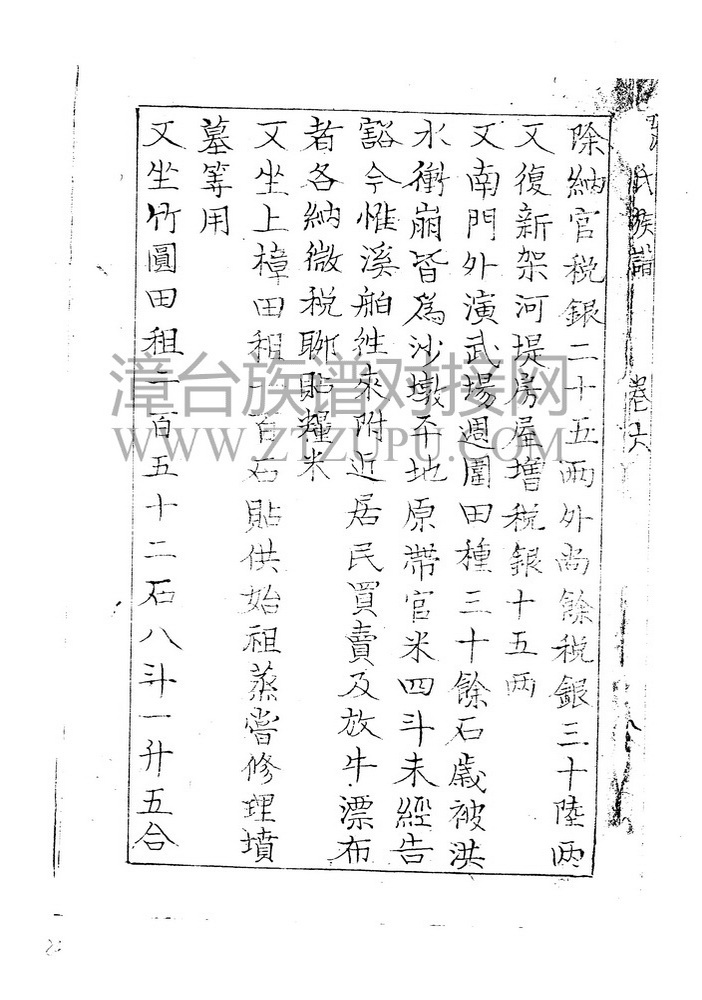 氏族譜 卷六
除納官稅銀二十五兩外尚餘稅銀三十陸兩
又復新架河堤房屋增稅銀十五兩
又南門外演武場週圍田種三十餘石歲被洪
水衝崩皆爲沙墩平地原帶官米四斗未經告
豁今惟溪船往來附近居民買賣及放牛漂布
者各納微稅聊貼糧米
又坐上樟田租一百石貼供始祖蒸嘗修理墳
墓等用
又坐竹圓田租二百五十二石八斗一升五合
漳台族谱对接网
WWW.ZTZUPU.COM